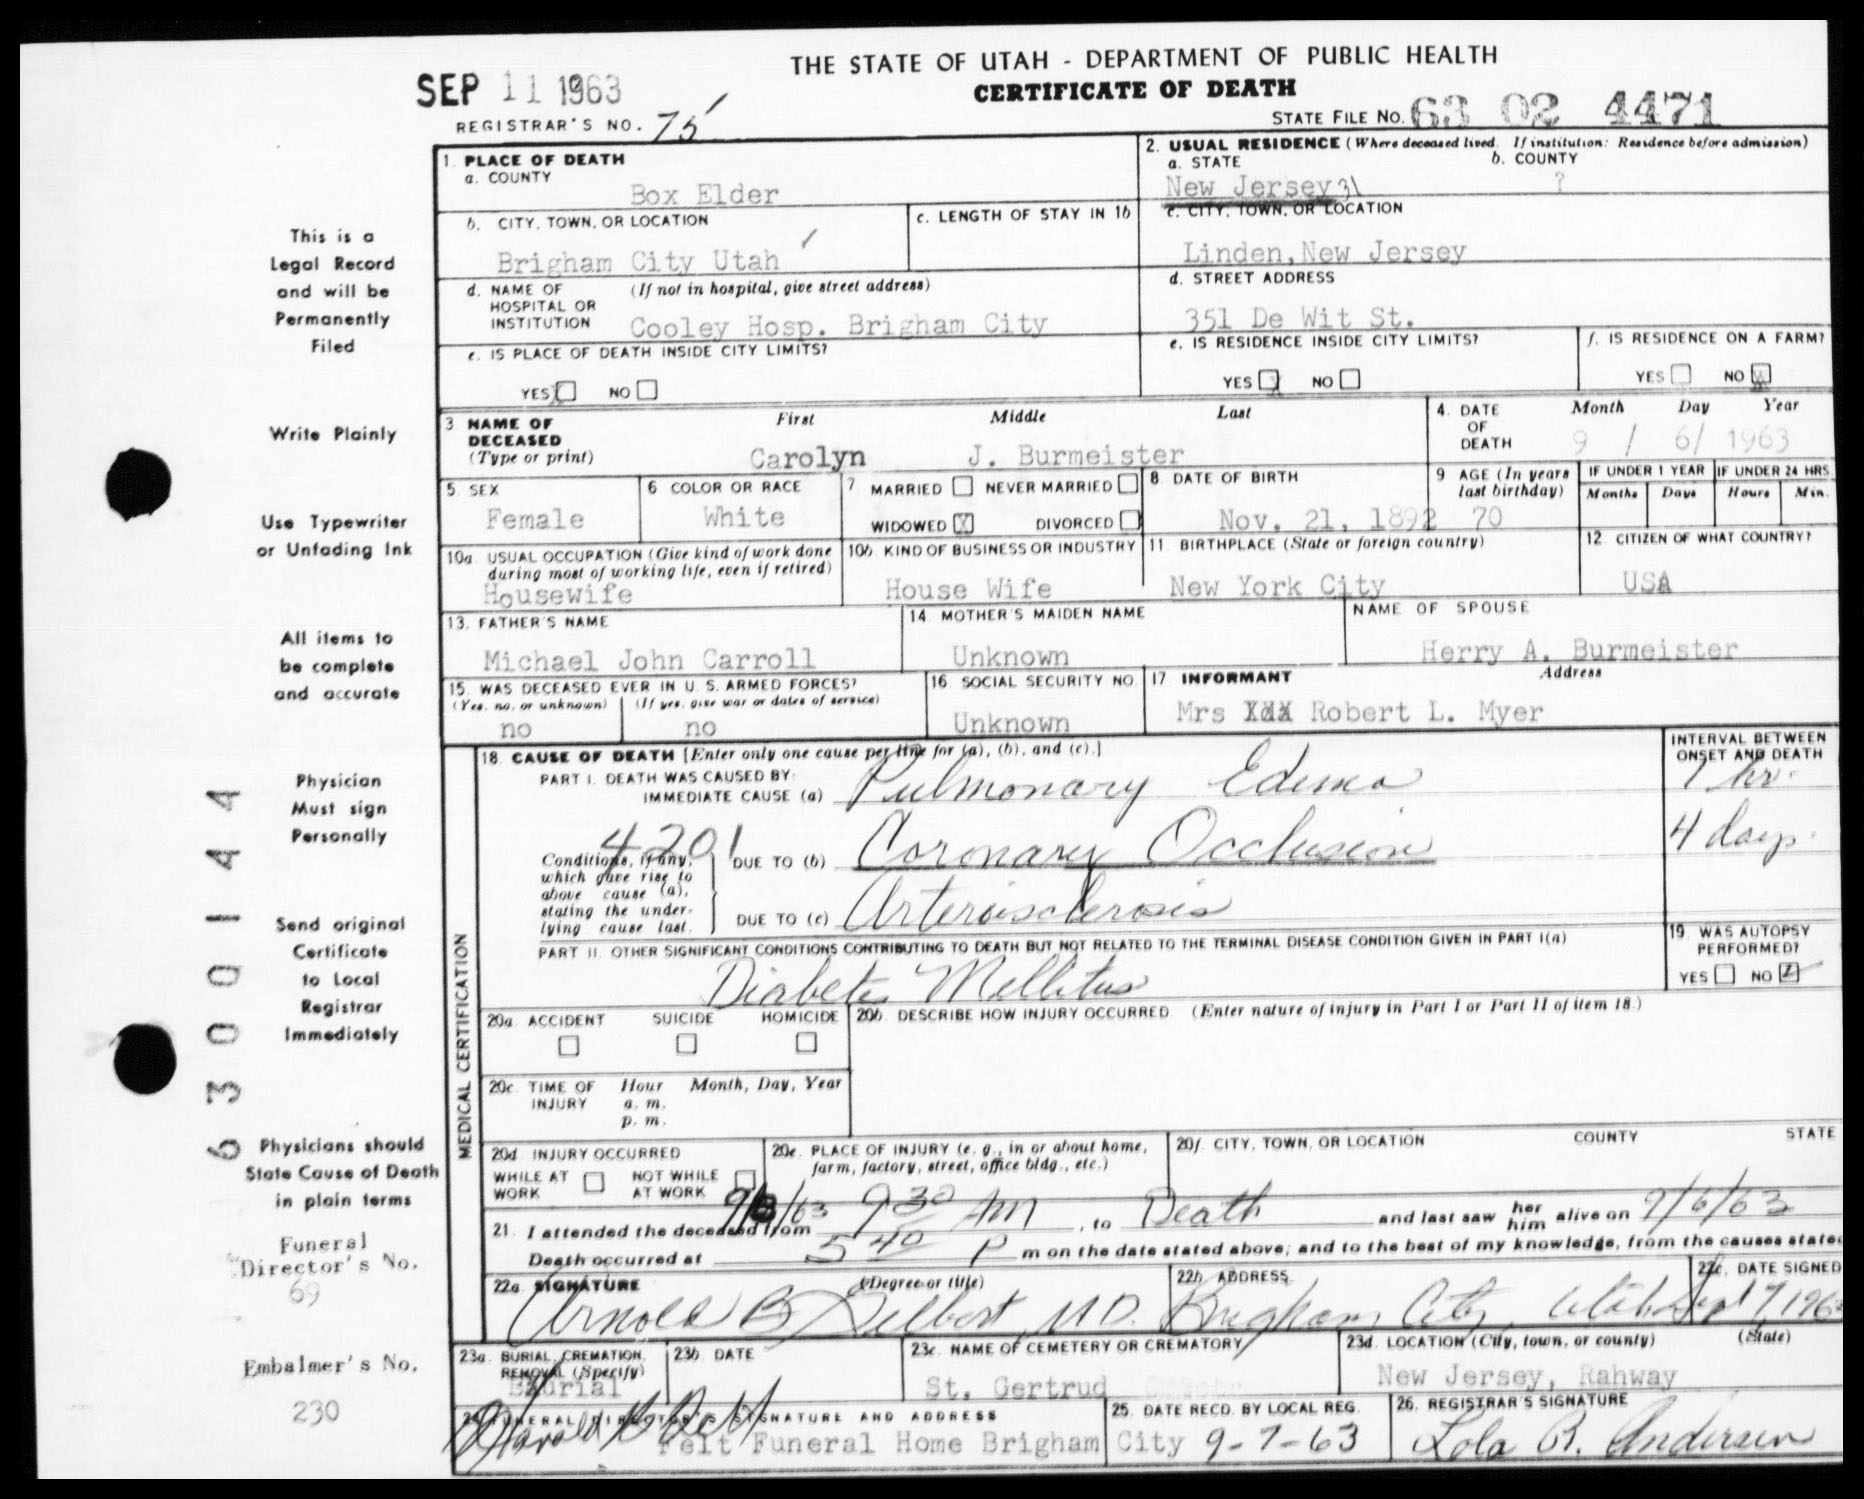 THE STATE OF UTAH - DEPARTMENT OF PUBLIC HEALTH
SEP 11 1963
CERTIFICATE OF DEATH
REGISTRAR'S NO. 75
STATE FILE NO. 63 02 4471
1. PLACE OF DEATH
a. COUNTY
Box Elder
2. USUAL RESIDENCE (Where deceased lived. If institution: Residence before admission)
a. STATE
New Jersey 31
b. COUNTY
?
b. CITY, TOWN, OR LOCATION
Brigham City Utah
c. LENGTH OF STAY IN 1b
c. CITY, TOWN, OR LOCATION
Linden, New Jersey
d. NAME OF HOSPITAL OR INSTITUTION (If not in hospital, give street address)
Cooley Hosp. Brigham City
d. STREET ADDRESS
351 De Wit St.
e. IS PLACE OF DEATH INSIDE CITY LIMITS?
YES X NO
e. IS RESIDENCE INSIDE CITY LIMITS?
YES X NO
f. IS RESIDENCE ON A FARM?
YES NO X
3 NAME OF DECEASED (Type or print)
First Middle Last
Carolyn J. Burmeister
4. DATE OF DEATH
Month Day Year
9 / 6/ 1963
5. SEX
Female
6 COLOR OR RACE
White
7 MARRIED NEVER MARRIED
WIDOWED X DIVORCED
8 DATE OF BIRTH
Nov. 21, 1892
9 AGE (In years last birthday)
70
IF UNDER 1 YEAR
Months Days
IF UNDER 24 HRS.
Hours Min.
10a. USUAL OCCUPATION (Give kind of work done during most of working life, even if retired)
Housewife
10b. KIND OF BUSINESS OR INDUSTRY
House Wife
11. BIRTHPLACE (State or foreign country)
New York City
12. CITIZEN OF WHAT COUNTRY?
USA
13. FATHER'S NAME
Michael John Carroll
14 MOTHER'S MAIDEN NAME
Unknown
NAME OF SPOUSE
Herry A. Burmeister
15. WAS DECEASED EVER IN U. S. ARMED FORCES?
(Yes, no, or unknown) (If yes, give war or dates of service)
no no
16 SOCIAL SECURITY NO.
Unknown
17 INFORMANT Address
Mrs Robert L. Myer
MEDICAL CERTIFICATION
18. CAUSE OF DEATH [Enter only one cause per line for (a), (b), and (c).]
INTERVAL BETWEEN ONSET AND DEATH
PART I. DEATH WAS CAUSED BY:
IMMEDIATE CAUSE (a) Pulmonary Edema 1 hr.
4201
Conditions, if any, which gave rise to above cause (a), stating the underlying cause last.
DUE TO (b) Coronary Occlusion 4 days.
DUE TO (c) Arteroisclerosis
PART II. OTHER SIGNIFICANT CONDITIONS CONTRIBUTING TO DEATH BUT NOT RELATED TO THE TERMINAL DISEASE CONDITION GIVEN IN PART I(a)
Diabetes Mellitus
19. WAS AUTOPSY PERFORMED?
YES NO
20a. ACCIDENT SUICIDE HOMICIDE
20b. DESCRIBE HOW INJURY OCCURRED. (Enter nature of injury in Part I or Part II of item 18.)
20c. TIME OF INJURY Hour Month, Day, Year
a. m.
p. m.
20d. INJURY OCCURRED
WHILE AT WORK NOT WHILE AT WORK
20e. PLACE OF INJURY (e. g., in or about home, farm, factory, street, office bldg., etc.)
20f. CITY, TOWN, OR LOCATION COUNTY STATE
21. I attended the deceased from 9/3/63 9 30 AM, to Death and last saw her him alive on 9/6/63
Death occurred at 5 40 P m on the date stated above; and to the best of my knowledge, from the causes stated
22a. SIGNATURE (Degree or title)
Arnold B. Gilbert M.D.
22b. ADDRESS
Brigham City, Utah
22c. DATE SIGNED
Sept 7 1963
23a. BURIAL, CREMATION, REMOVAL (Specify)
Burial
23b. DATE
23c. NAME OF CEMETERY OR CREMATORY
St. Gertrud
23d. LOCATION (City, town, or county) (State)
New Jersey, Rahway
24. FUNERAL DIRECTOR'S SIGNATURE AND ADDRESS
Harold B Felt
Felt Funeral Home Brigham City
25. DATE RECD. BY LOCAL REG.
9-7-63
26. REGISTRAR'S SIGNATURE
Lola R. Andersen
This is a
Legal Record
and will be
Permanently
Filed
Write Plainly
Use Typewriter
or Unfading Ink
All items to
be complete
and accurate
Physician
Must sign
Personally
Send original
Certificate
to Local
Registrar
Immediately
Physicians should
State Cause of Death
in plain terms
Funeral
Director's No.
69
Embalmer's No.
230
6300144